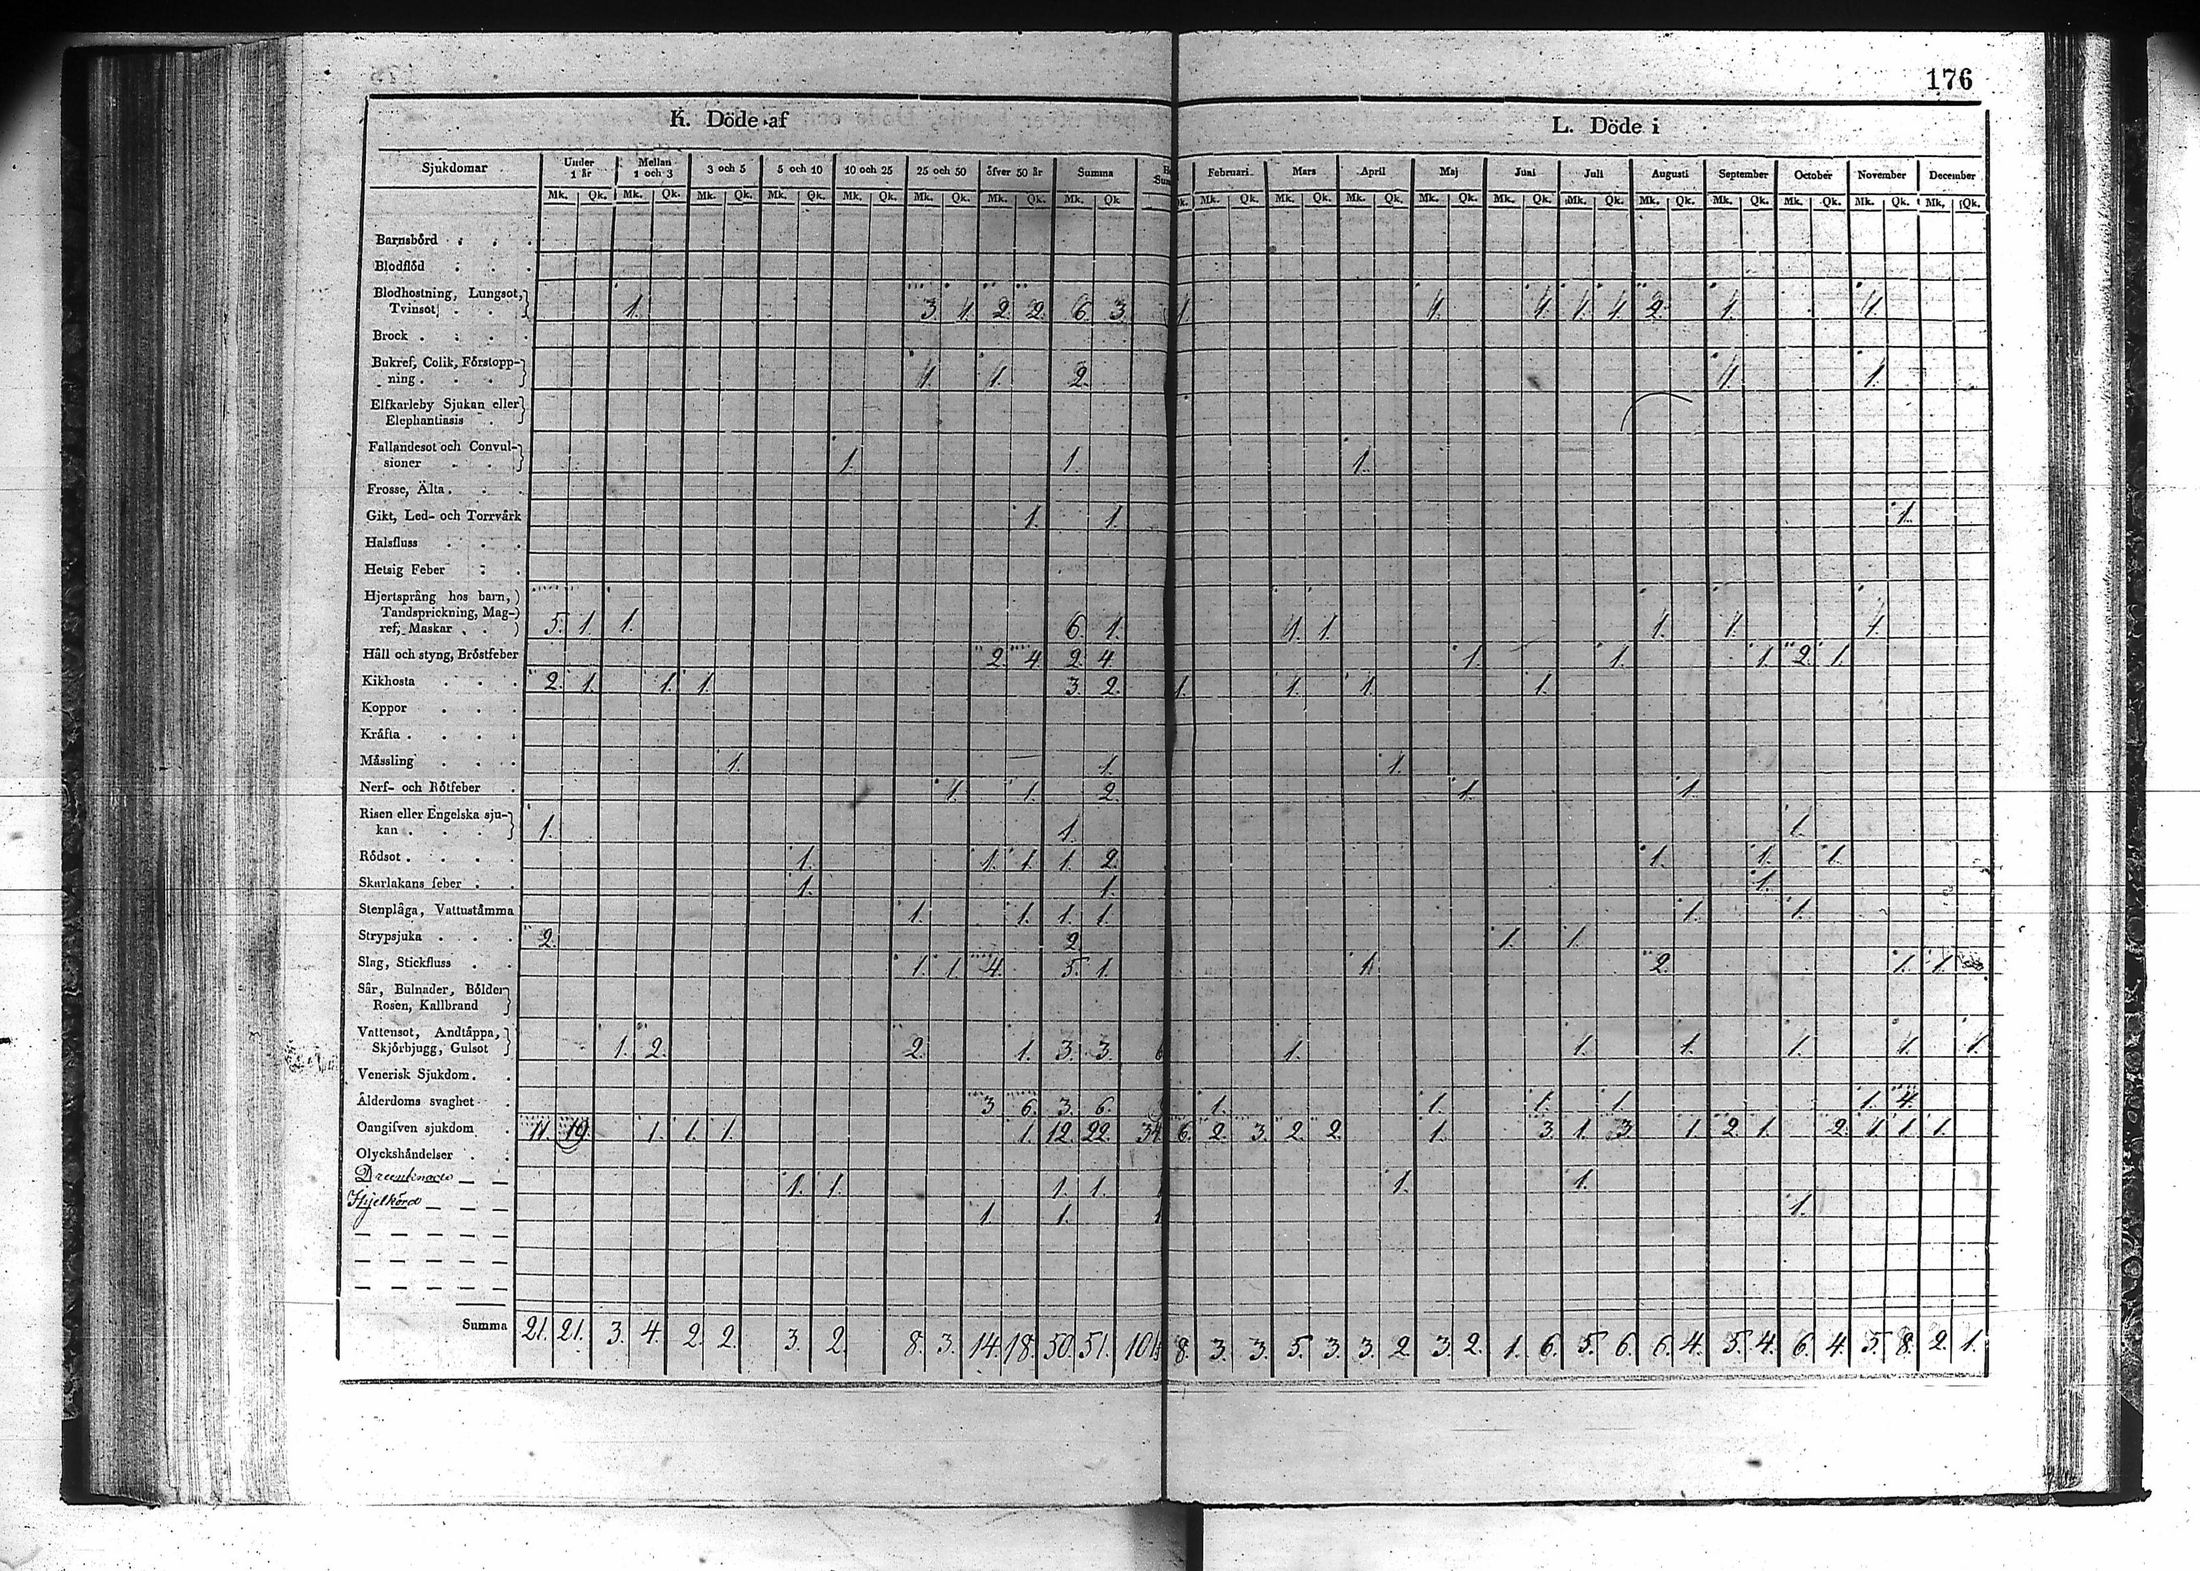 176
K. Döde af
L. Döde i
Sjukdomar Under 1 år Mellan 1 och 3 3 och 5 5 och 10 10 och 25 25 och 50 öfver 50 år Summa Februari. Mars April Maj Juni Juli Augusti September October November December
Mk. Qk. Mk. Qk. Mk. Qk. Mk. Qk. Mk. Qk. Mk. Qk. Mk. Qk. Mk. Qk Mk. Qk. Mk. Qk. Mk. Qk. Mk. Qk. Mk. Qk. Mk. Qk. Mk. Qk. Mk. Qk. Mk. Qk. Mk. Qk. Mk. Qk.
Barnsbörd
Blodflöd
Blodhostning, Lungsot,
Tvinsot 1. 3. 1. 2. 2. 6. 3. 1. 1. 1. 1. 1. 2. 1. 1.
Brock
Bukref, Colik, Förstopp-
ning 1. 1. 2. 1. 1.
Elfkarleby Sjukan eller
Elephantiasis
Fallandesot och Convul-
sioner 1. 1. 1.
Frosse, Älta
Gikt, Led- och Torrvärk 1. 1. 1.
Halsfluss
Hetsig Feber
Hjertsprång hos barn,
Tandsprickning, Mag-
ref, Maskar 5. 1. 1. 6. 1. 1. 1. 1. 1. 1.
Håll och styng, Bröstfeber 2. 4. 2. 4. 1. 1. 1. 2. 1.
Kikhosta 2. 1. 1. 1. 3. 2. 1. 1. 1. 1.
Koppor
Kräfta
Mässling 1. 1. 1.
Nerf- och Rötfeber 1. 1. 2. 1. 1.
Risen eller Engelska sju-
kan 1. 1. 1.
Rödsot 1. 1. 1. 1. 2. 1. 1. 1.
Skarlakans feber 1. 1. 1.
Stenplåga, Vattustämma 1. 1. 1. 1. 1. 1.
Strypsjuka 2. 2. 1. 1.
Slag, Stickfluss 1. 1. 4. 5. 1. 1. 2. 1. 1.
Sår, Bulnader, Bölder
Rosen, Kallbrand
Vattensot, Andtäppa,
Skjörbjugg, Gulsot 1. 2. 2. 1. 3. 3. 1. 1. 1. 1. 1. 1.
Venerisk Sjukdom.
Ålderdoms svaghet 3. 6. 3. 6. 1. 1. 1. 1. 1. 4.
Oangifven sjukdom 11. 19. 1. 1. 1. 1. 12. 22. 34 6. 2. 3. 2. 2. 1. 3. 1. 3. 1. 2. 1. 2. 1. 1. 1.
Olyckshändelser
1. 1. 1. 1. 1. 1.
1. 1. 1.
Summa 21. 21. 3. 4. 2. 2. 3. 2. 8. 3. 14. 18. 50. 51. 101 8. 3. 3. 5. 3. 3. 2. 3. 2. 1. 6. 5. 6. 6. 4. 5. 4. 6. 4. 5. 8. 2. 1.